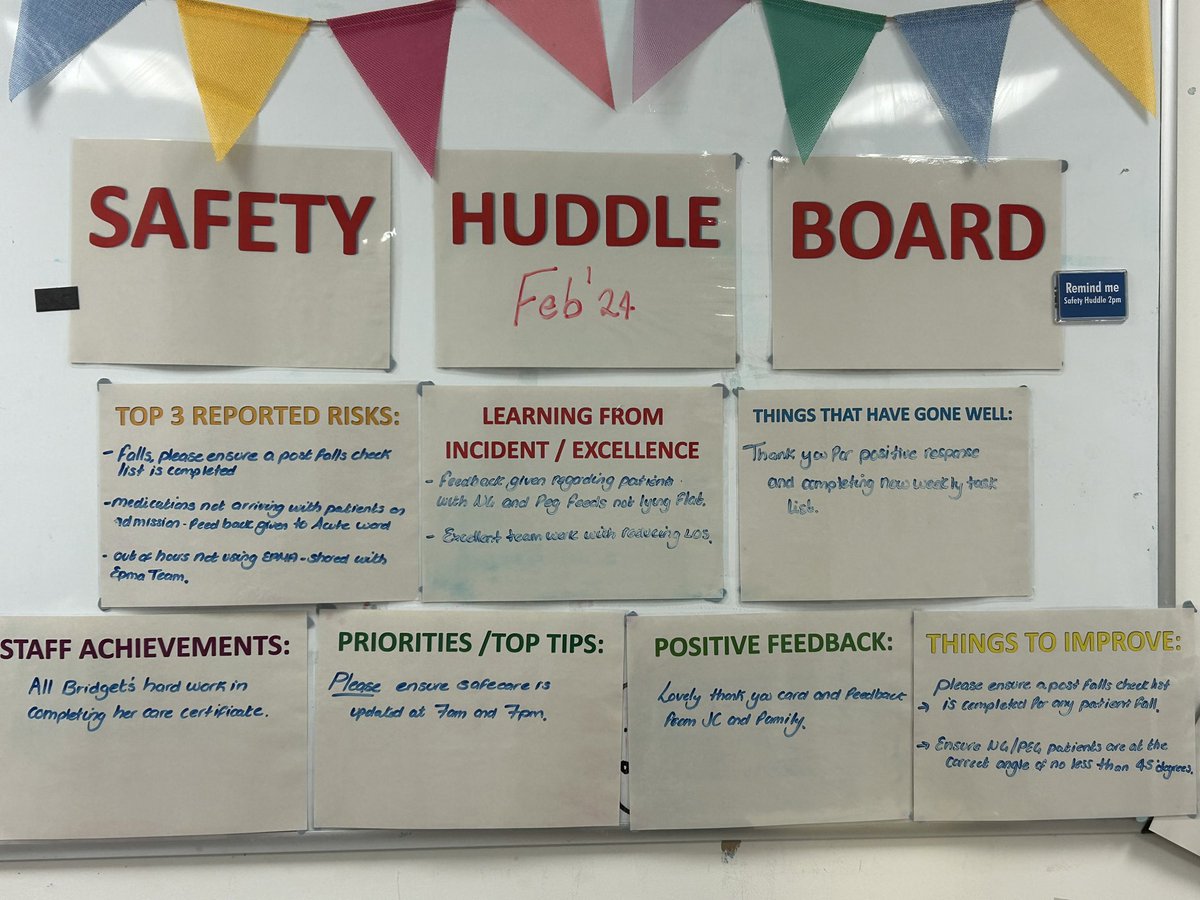 SAFETY
HUDDLE
Feb'24
BOARD
Remind me
Safety Huddle 2pm
TOP 3 REPORTED RISKS:
- Falls, please ensure a post falls check
list is completed
- medications not arriving with patients on
admission - feed back given to Acute ward
- out of hours not using EPMA - shared with
Epma Team.
LEARNING FROM
INCIDENT / EXCELLENCE
- Feedback given regarding patients
with NG and Peg Feeds not lying flat.
- Excellent team work with reducing LOS.
THINGS THAT HAVE GONE WELL:
Thank you for positive response
and completing new weekly task
list.
STAFF ACHIEVEMENTS:
All Bridget's hard work in
completing her care certificate.
PRIORITIES /TOP TIPS:
Please ensure safecare is
updated at 7am and 7pm.
POSITIVE FEEDBACK:
Lovely thank you card and feedback
from JC and family.
THINGS TO IMPROVE:
please ensure a post falls checklist
→ is completed for any patient fall.
→ Ensure NG/PEG patients are at the
correct angle of no less than 45 degrees.